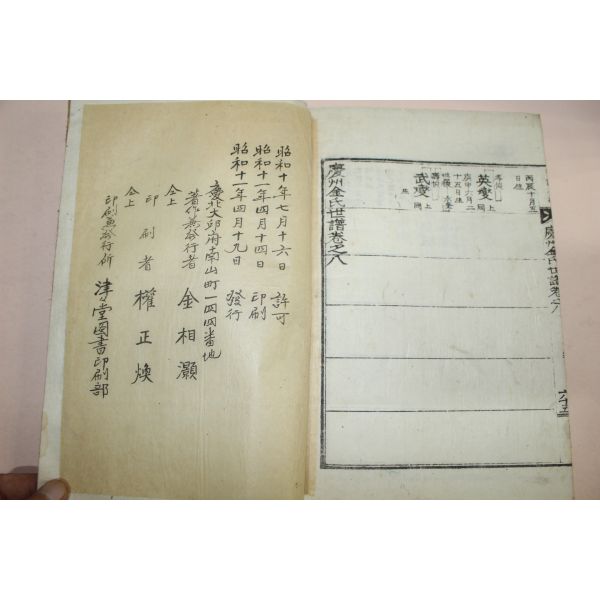 丙辰十月五
日生
英燮
上同
庚申六月二
十五日生
武燮
上同
慶州金氏世譜卷之八
慶州金氏世譜卷八
六十五
昭和十年七月十六日 許可
昭和十一年四月十四日 印刷
昭和十一年四月十九日 發行
慶北大邱府南山町一四四番地
著作兼發行者 金相灝
仝上
印刷者 權正煥
仝上
印刷兼發行所 津々堂圖書印刷部